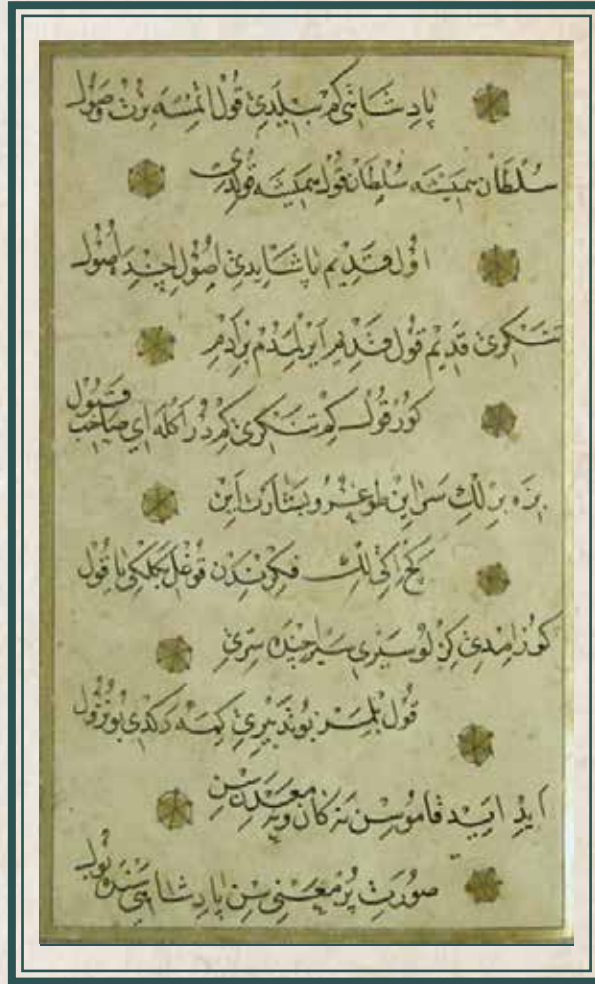 پادشاهی کم بیلدی قول ائمسه یرت وصول
سلطان همیشه سلطان قول همیشه قولدی
اول قدیم پادشاه ایدی اصول ایچنده اصول
تنکری قدیم قول قدیم ایرلمدم بر آدم
کور قول کم تنکری کمدر اکله ای صاحب قبول
بزه برلک سراین طوغرو بشارت این
کچ اکی لک فکرندن قوغل بنلکی یا قول
کوز ایمدی کزلو سیری سیر ایچنده سری
قول بلمز بو تدبیری کمه دکدی بو نزول
اید ایید قاموسن نه کان ونه معدنسن
صورت پر معنی سن پادشاهی سنده بول